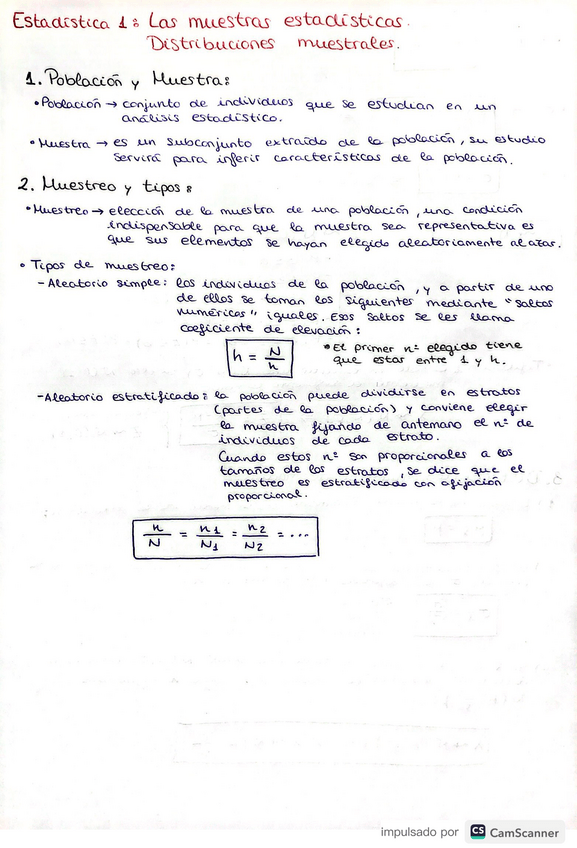 Estadística 1: Las muestras estadísticas.
Distribuciones muestrales.
1. Población y Muestra:
• Población → conjunto de individuos que se estudian en un
análisis estadístico.
• Muestra → es un subconjunto extraído de la población, su estudio
servirá para inferir características de la población.
2. Muestreo y tipos:
• Muestreo → elección de la muestra de una población, una condición
indispensable para que la muestra sea representativa es
que sus elementos se hayan elegido aleatoriamente al azar.
• Tipos de muestreo:
- Aleatorio simple: los individuos de la población, y a partir de uno
de ellos se toman los siguientes mediante "saltos
numéricos" iguales. Esos saltos se les llama
coeficiente de elevación:
h = N/n
• El primer nº elegido tiene
que estar entre 1 y h.
- Aleatorio estratificado: la población puede dividirse en estratos
(partes de la población) y conviene elegir
la muestra fijando de antemano el nº de
individuos de cada estrato.
Cuando estos nº son proporcionales a los
tamaños de los estratos, se dice que el
muestreo es estratificado con afijación
proporcional.
n/N = n1/N1 = n2/N2 = ...
impulsado por CS CamScanner